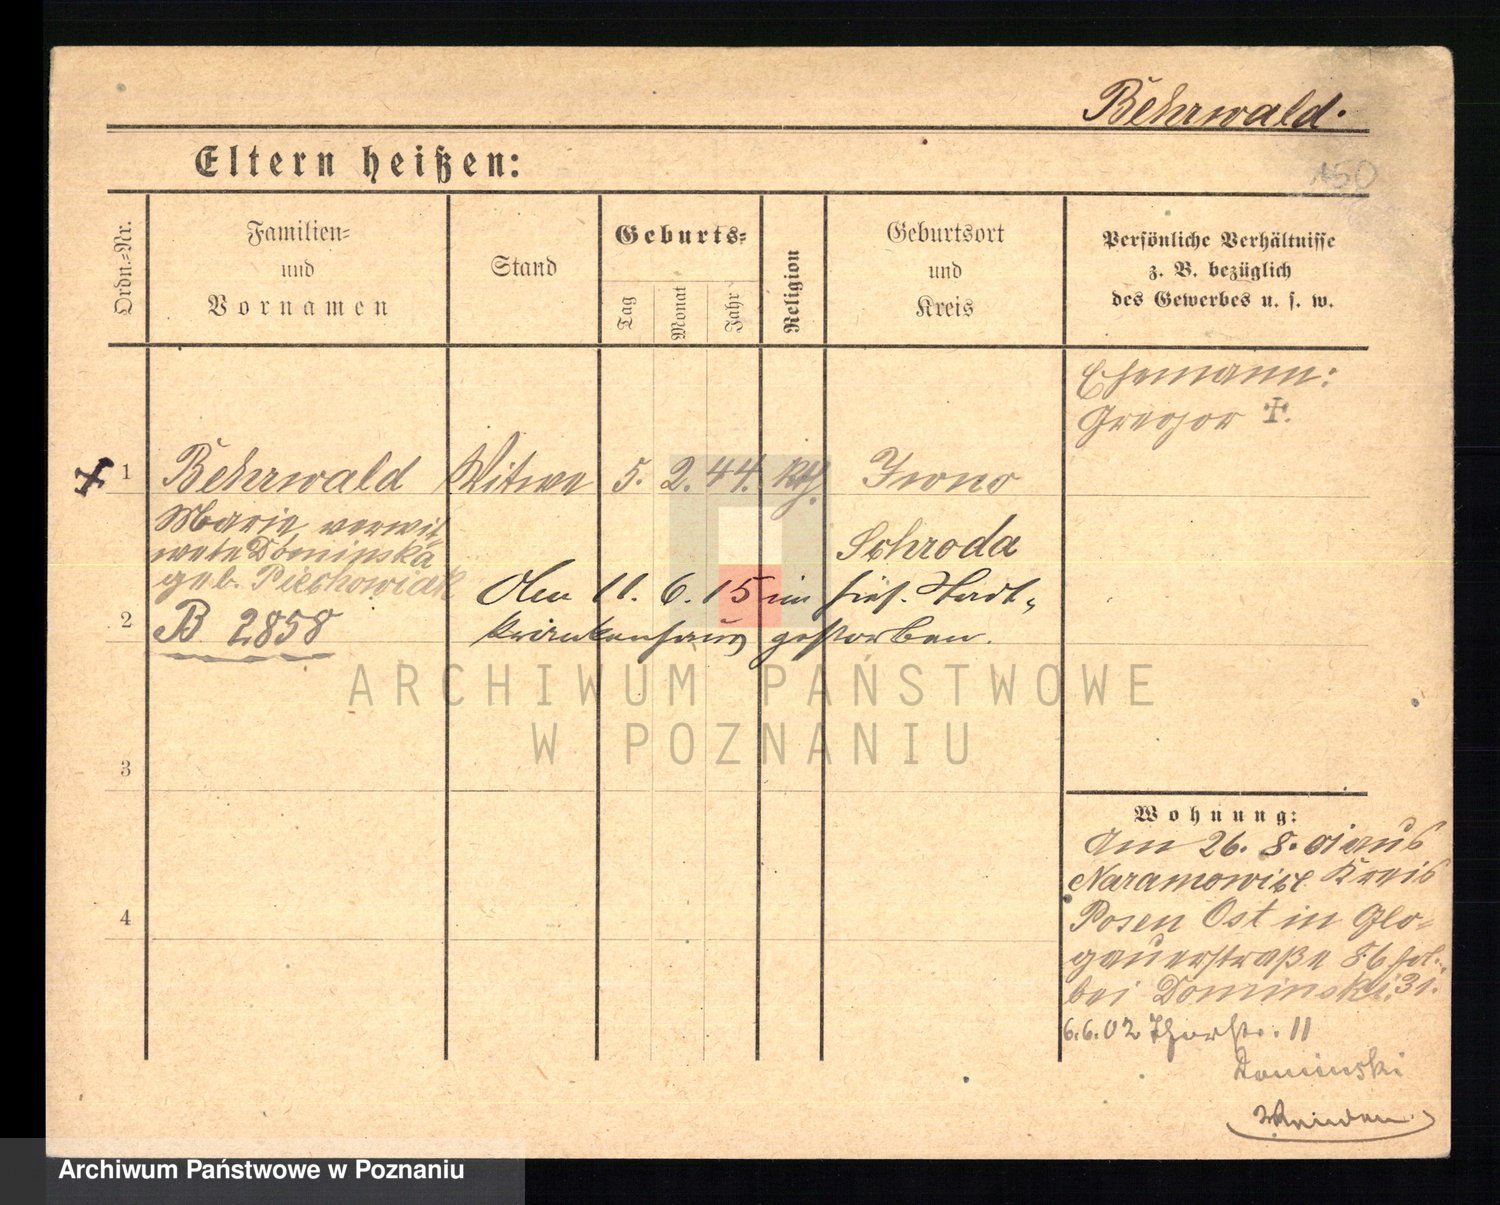 Behrwald.
Eltern heißen:
150
Ordn.-Nr.
Familien-
und
Vornamen
Stand
Geburts-
Tag
Monat
Jahr
Religion
Geburtsort
und
Kreis
Persönliche Verhältnisse
z. B. bezüglich
des Gewerbes u. s. w.
Ehemann:
Gregor ✝.
1 Behrwald Witwe 5. 2. 44. kth.
Marie, verwit-
wete Dominska
Schroda
geb. Pieckowiak
Am 11. 6. 15 im hies. Stadt-
2 B 2858
krankenhaus gestorben.
ARCHIWUM PAŃSTWOWE
W POZNANIU
3
4
Wohnung:
Am 26. 8. 01 aus
Naramowice Kreis
Posen Ost in Glo-
gauerstraße 86
bei Dominski. 31.
6.6.02 Thorstr. 11
Dominski
Archiwum Państwowe w Poznaniu